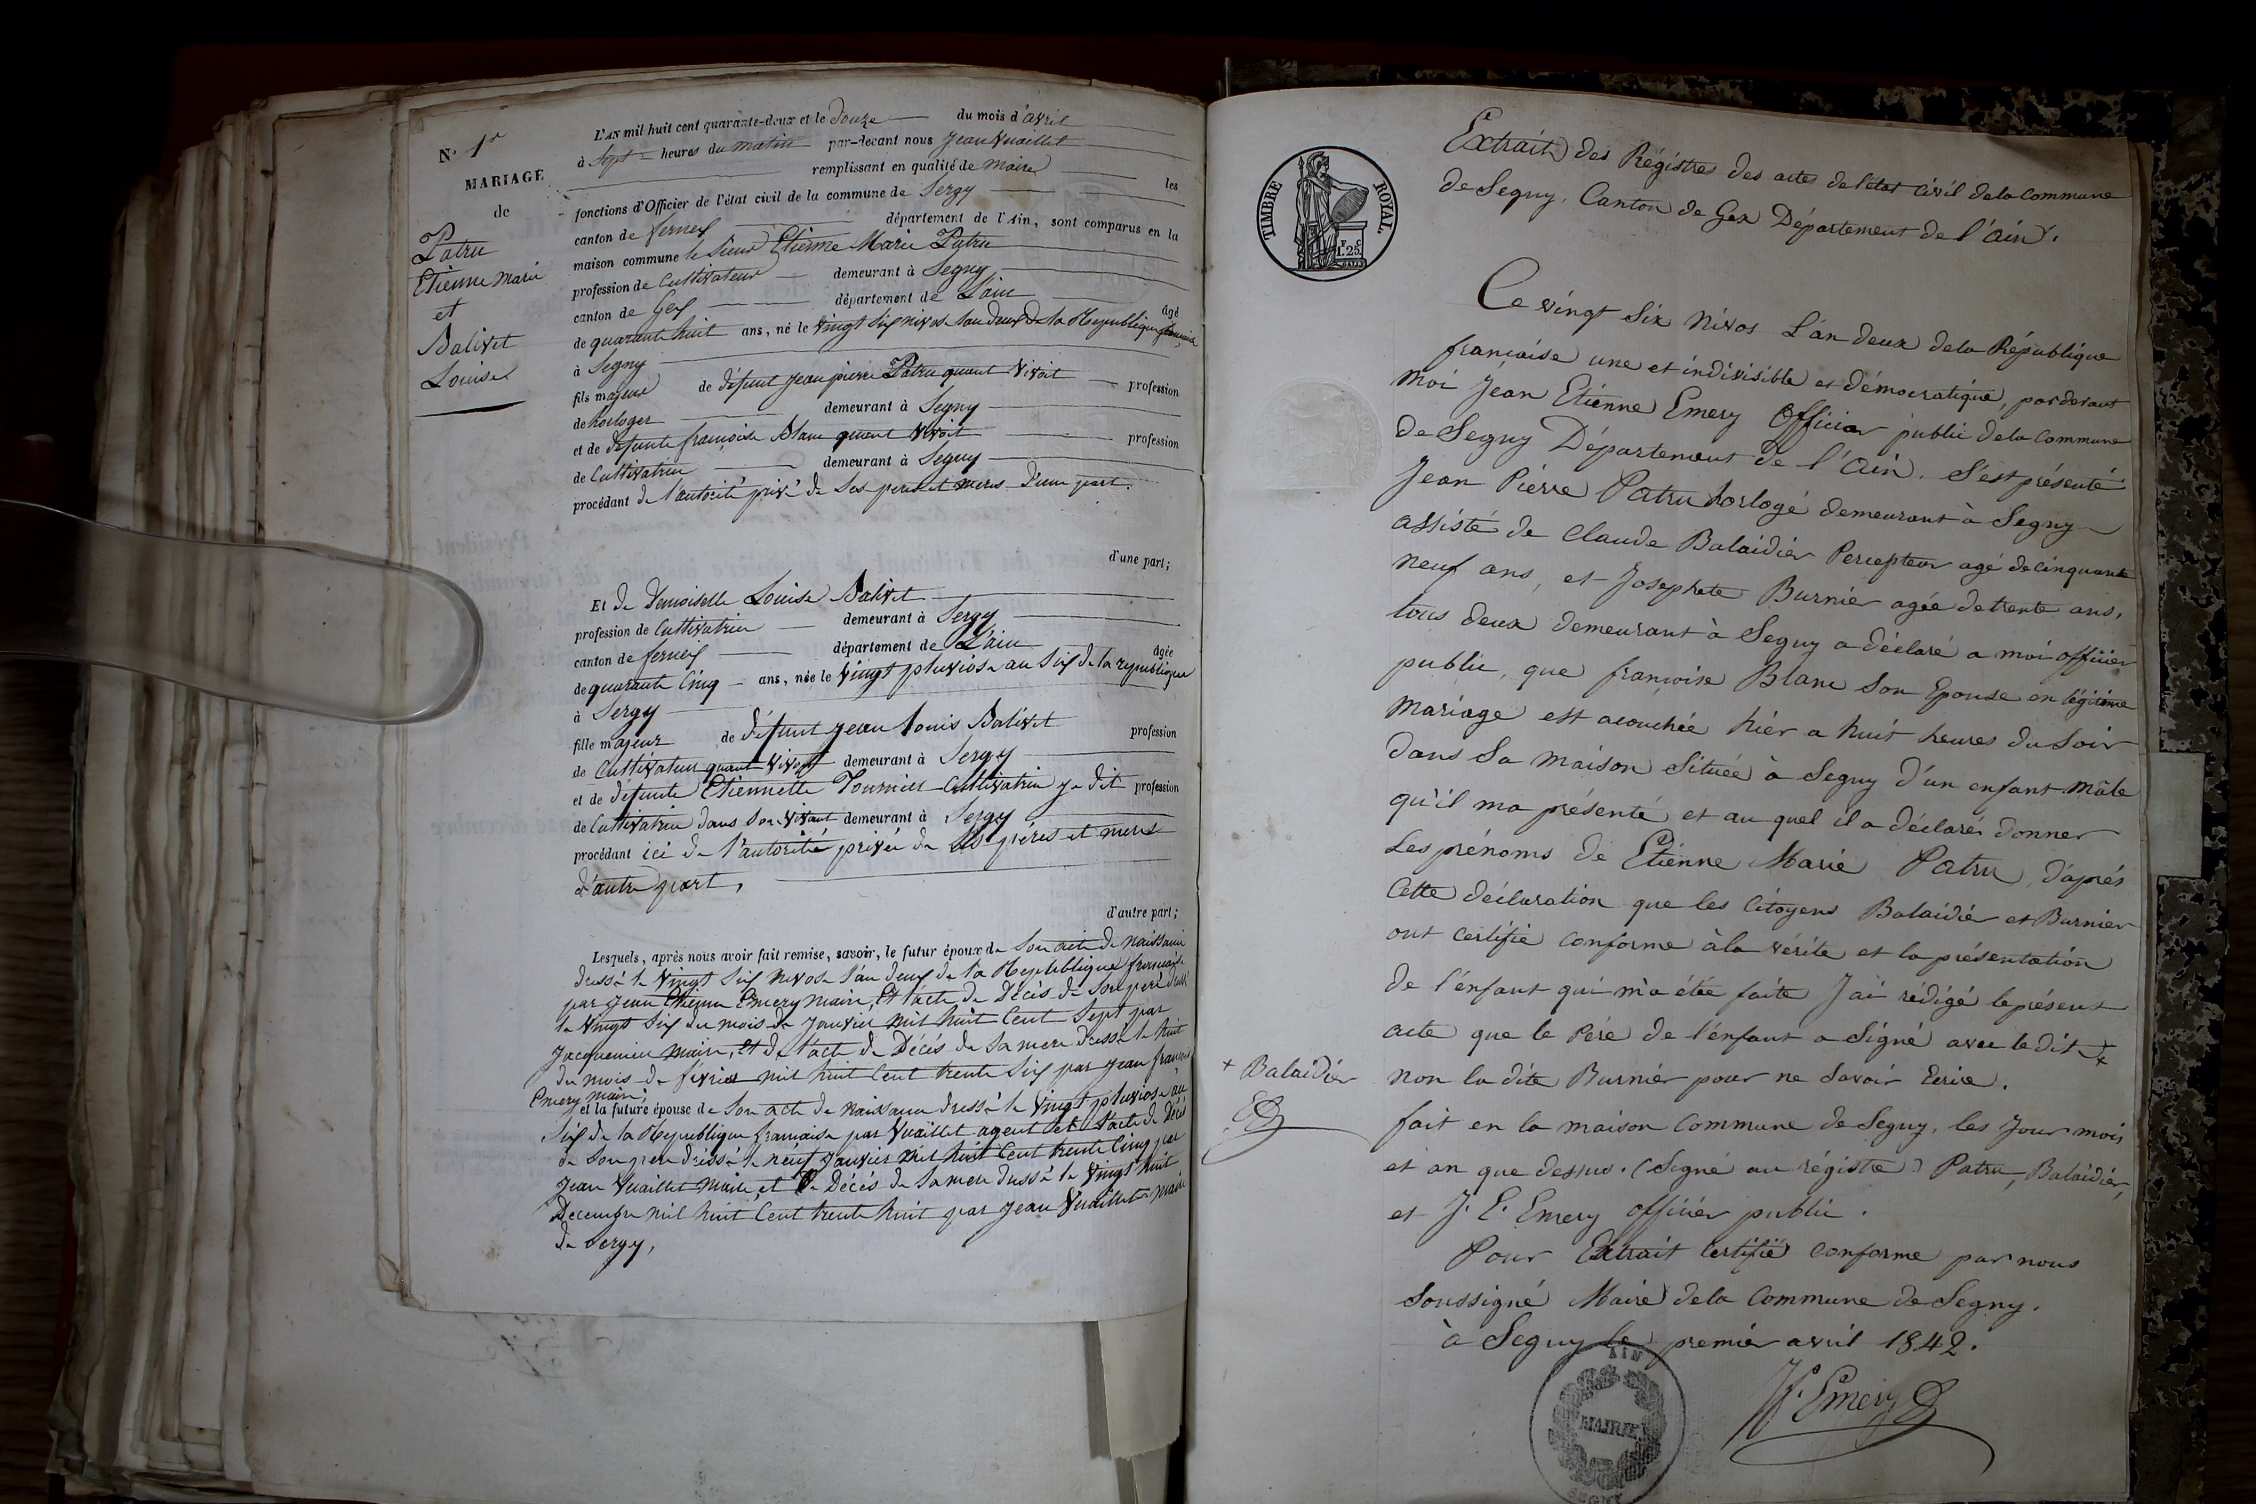 N.° 1er
MARIAGE
de
Patru
Etienne Marie
et
Balivet
Louise
L'AN mil huit cent quarante-deux et le douze du mois d'avril
à Sept heures du matin par-devant nous Jean Vuaillet
remplissant en qualité de Maire les
fonctions d'Officier de l'état civil de la commune de Sergy
canton de ferney département de l'Ain, sont comparus en la
maison commune le Sieur Etienne Marie Patru
profession de Cultivateur demeurant à Segny
canton de Gex département de L'ain âgé
de quarante huit ans, né le vingt six nivos l'an deux de la Republique française
à Segny
fils majeur de défunt Jean pierre Patru quant vivoit profession
de horloger demeurant à Segny
et de défunte françoise Blanc quant vivoit profession
de Cultivatrice demeurant à Segny
procédant de l'autorité privé de Ses peres et meres D'une part.
d'une part;
Et de Demoiselle Louise Balivet
profession de Cultivatrice demeurant à Sergy
canton de ferney département de L'ain âgée
de quarante Cinq ans, née le vingt pluviose an Six de la republique
à Sergy
fille majeur de défunt Jean Louis Balivet profession
de Cultivateur quant vivoit demeurant à Sergy
et de défunte Etiennette Tournier Cultivatrice y dit profession
de Cultivatrice dans Son vivant demeurant à Sergy
procédant ici de l'autorité privée de Ses pères et meres
d'autre part,
d'autre part;
Lesquels, après nous avoir fait remise, savoir, le futur époux de Son acte de naissance
dressé le vingt Six nivose l'an deux de la Republique française
par Jean Etienne Emery maire, Et l'acte de Décés de Son pere dressé
le vingt Six du mois de Janvier mil huit Cent Sept par
Jacquemier maire, et de l'acte de Décés de Sa mere dressé le huit
du mois de fevrier mil huit Cent trente Six par Jean françois
Emery maire;
et la future épouse de Son acte de naissance dressé le vingt pluviose an
Six de la Republique française par Vuaillet agent et l'acte de Décés
de Son pere dressé le neuf Janvier mil huit Cent trente Cinq par
Jean Vuaillet maire et de Décés de Sa mere dressé le vingt huit
Decembre mil huit Cent trente huit par Jean Vuaillet maire
de Sergy,
TIMBRE ROYAL
1.25
Extrait des Régistres des actes de l'état Civil de la Commune
de Segny, Canton de Gex Département de l'ain.
Ce vingt Six Nivos L'an deux de la République
française une et indivisible et démocratique, par devant
moi Jean Etienne Emery Officier public de la Commune
de Segny Département de l'Ain. S'est présenté
Jean Piérre Patru horlogé demeurant à Segny
assisté de Claude Balaidiér Percepteur agé de cinquante
neuf ans, et Josephete Burniér agée de trente ans,
tous deux demeurant à Segny a déclaré a moi officiér
public, que françoise Blanc Son Epouse en légitime
Mariage est acouchée hiér a huit heures du Soir
dans Sa maison Située à Segny d'un enfant mâle
qu'il ma présenté et au quel il a déclaré donner
Les prénoms de Etiénne Marie Patru, d'aprés
Cette déclaration que les Citoyens Balaidiér et Burniér
ont certifié conforme à la vérité et la présentation
de l'énfant qui m'a étée faite J'ai rédigé le présent
acte que le Pére de l'énfant a Signé avec le dit +
+ Balaidiér
non la dite Burniér pour ne Savoir Ecrire.
fait en la maison Commune de Segny, les Jour mois
et an que dessus. (Signé au régistre) Patru, Balaidiér,
et J. E. Emery officiér public.
Pour Extrait certifié conforme par nous
Soussigné Maire de la Commune de Segny.
à Segny le premiér avril 1842.
Jf. Emery
AIN
MAIRIE
SEGNY